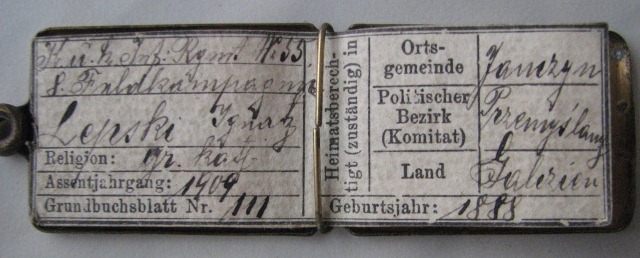 K. u. k. Inf. Regmt. Nr. 55
8. Feldkompagnie
Lepski Ignatz
Religion: gr. kath.
Assentjahrgang: 1909
Grundbuchsblatt Nr. 111
Heimatsberech-
tigt (zuständig) in
Orts-
gemeinde Janczyn
Politischer
Bezirk
(Komitat) Przemyślany
Land Galizien
Geburtsjahr: 1888